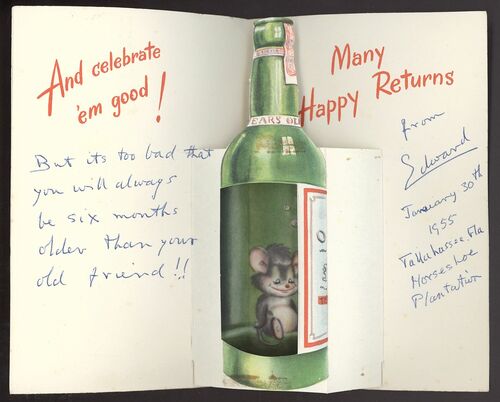 And celebrate
'em good!
But its too bad that
you will always
be six months
older than your
old friend!!
EARS OLD
Many
Happy Returns
from
Edward
January 30th
1955
Tallahassee. Fla
Horseshoe
Plantation